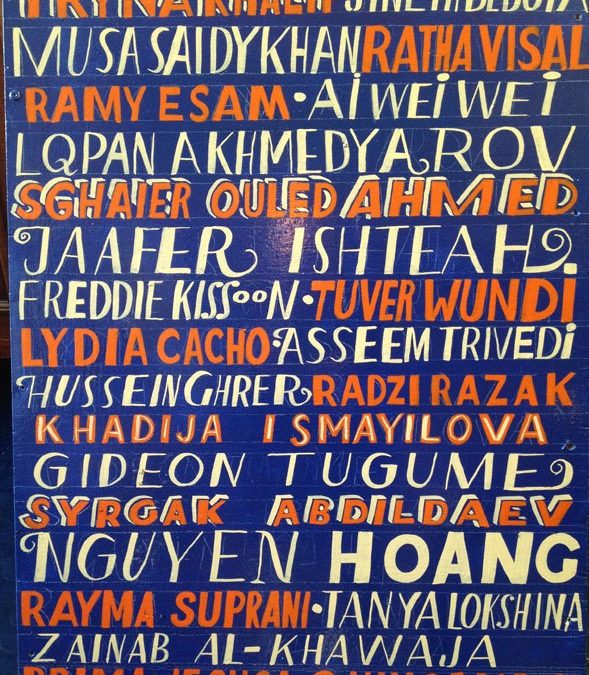 IRYNA KHALIP
MUSA SAIDYKHAN RATHA VISAL
RAMY ESAM • AiWEiWEi
LQPAN AKHMEDYAROV
SGHAIER OULED AHMED
JAAFER ISHTEAH.
FREDDIE KISSOON • TUVER WUNDi
LYDIA CACHO • ASSEEM TRIVEDi
HUSSEIN GHRER RADZI RAZAK
KHADIJA ISMAYILOVA
GIDEON TUGUME
SYRGAK ABDILDAEV
NGUYEN HOANG
RAYMA SUPRANI • TANYA LOKSHINA
ZAINAB AL-KHAWAJA